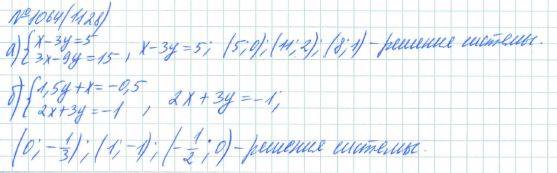 №1064(1128)
а) {x-3y=5
3x-9y=15, x-3y=5; (5;0); (11;2); (8;1) - решения системы.
б) {1,5y+x=-0,5
2x+3y=-1, 2x+3y=-1;
(0; -1/3); (1; -1); (-1/2; 0) - решения системы.